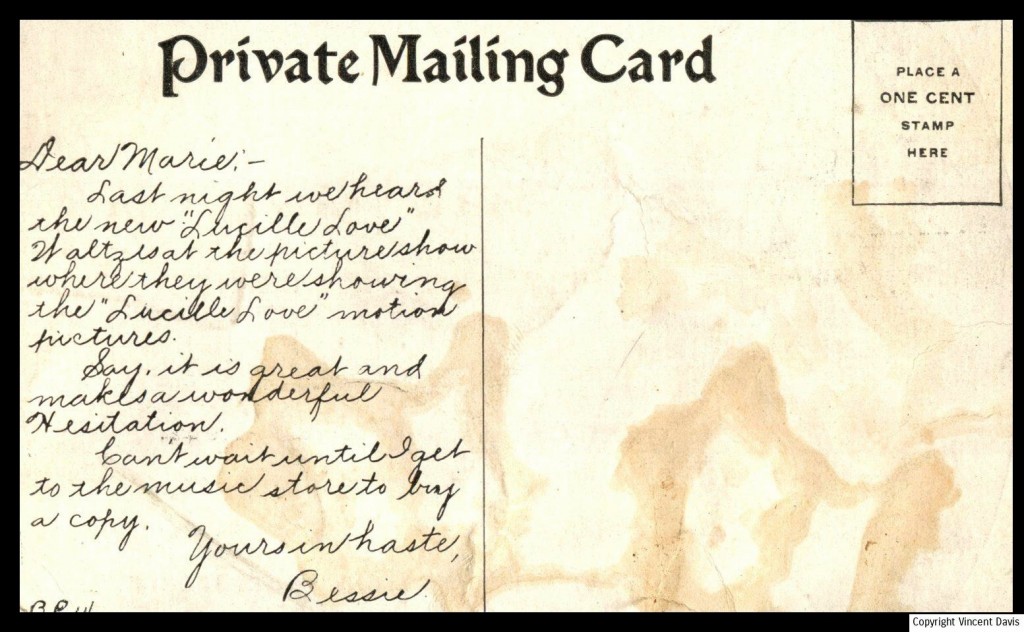 Private Mailing Card
PLACE A
ONE CENT
STAMP
HERE
Dear Marie:-
Last night we heard
the new "Lucille Love"
Waltzes at the picture show
where they were showing
the "Lucille Love" motion
pictures.
Say, it is great and
makes a wonderful
Hesitation.
Can't wait until I get
to the music store to buy
a copy.
Yours in haste,
Bessie
Copyright Vincent Davis